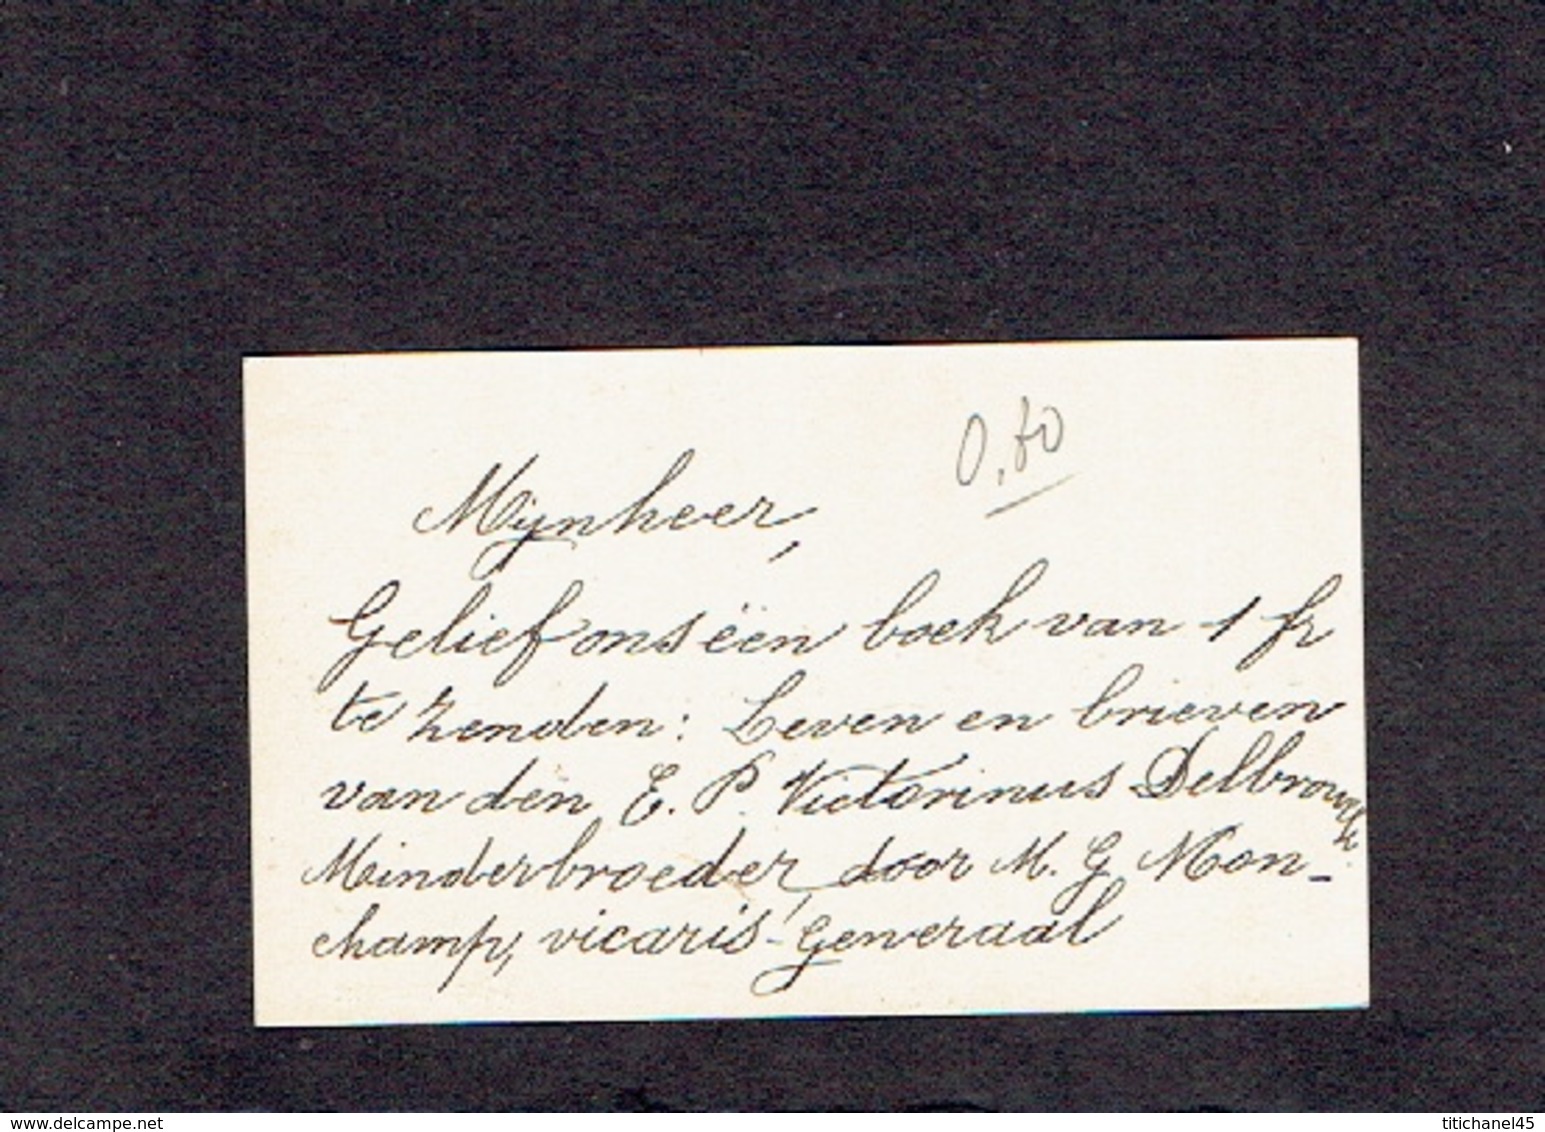 0,80
Mijnheer,
Gelief ons ëën boek van 1 fr
te zenden: Leven en brieven
van den E. P. Victorinus Delbrouck
Minderbroeder, door M. G Mon-
champ, vicaris-Generaal
delcampe.net
titichanel45